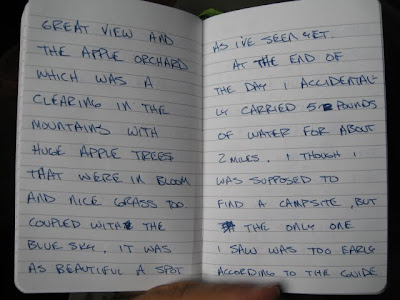 GREAT VIEW AND
THE APPLE ORCHARD
WHICH WAS A
CLEARING IN THE
MOUNTAINS WITH
HUGE APPLE TREES
THAT WERE IN BLOOM
AND NICE GRASS TOO.
COUPLED WITH THE
BLUE SKY. IT WAS
AS BEAUTIFUL A SPOT
AS I'VE SEEN YET.
AT THE END OF
THE DAY I ACCIDENTAL-
LY CARRIED 5 POUNDS
OF WATER FOR ABOUT
2 MILES. I THOUGH I
WAS SUPPOSED TO
FIND A CAMPSITE, BUT
THE ONLY ONE
I SAW WAS TOO EARLY
ACCORDING TO THE GUIDE